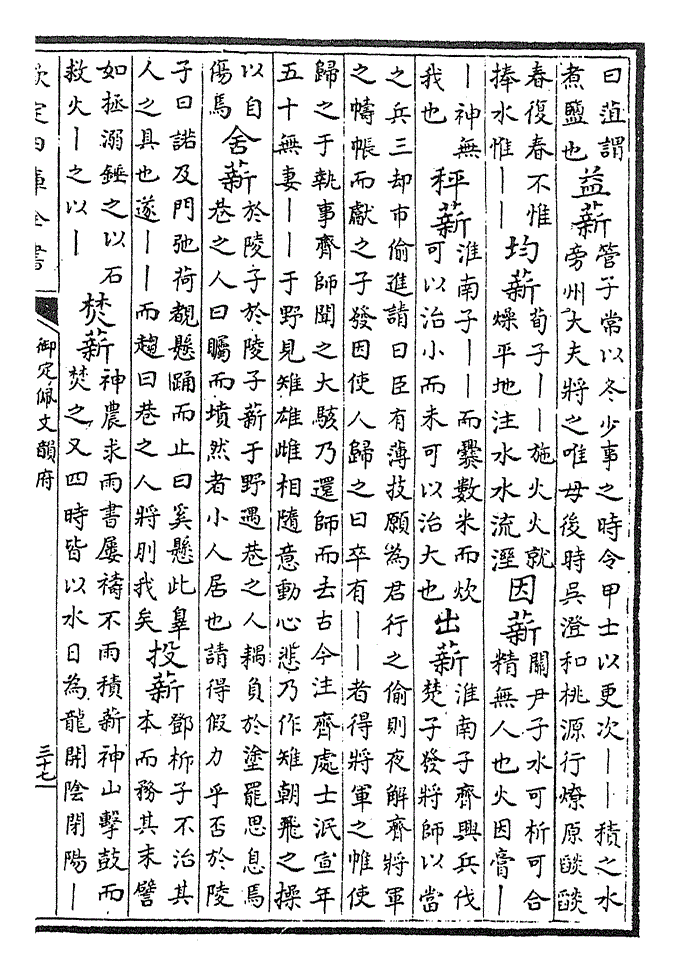 曰菹謂
煮鹽也
益薪
管子常以冬少事之時令甲士以更次丨丨積之水
旁州大夫將之唯毋後時吳澄和桃源行燎原燄燄
春復春不惟
捧水惟丨丨
均薪
荀子丨丨施火火就
燥平地注水水流溼
因薪
關尹子水可析可合
精無人也火因膏丨
丨神無
我也
秤薪
淮南子丨丨而爨數米而炊
可以治小而未可以治大也
出薪
淮南子齊興兵伐
楚子發將師以當
之兵三却市偷進請曰臣有薄技願為君行之偷則夜解齊將軍
之幬帳而獻之子發因使人歸之曰卒有丨丨者得將軍之帷使
歸之于執事齊師聞之大駭乃還師而去古今注齊處士泯宣年
五十無妻丨丨于野見雉雄雌相隨意動心悲乃作雉朝飛之操
以自
傷焉
舍薪
於陵子於陵子薪于野遇巷之人耦負於塗罷思息焉
巷之人曰矚而墳然者小人居也請得假力乎否於陵
子曰諾及門弛荷覩懸踊而止曰奚懸此辠
人之具也遂丨丨而趨曰巷之人將刖我矣
投薪
鄧析子不治其
本而務其末譬
如拯溺錘之以石
救火丨之以丨
焚薪
神農求雨書屢禱不雨積薪神山擊鼓而
焚之又四時皆以水日為龍開陰閉陽丨
欽定四庫全書
御定佩文韻府
三十七